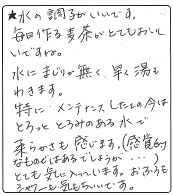 ★水の調子がいいです。
毎日作る麦茶がとてもおいし
いですね。
水にまじりが無く、早く湯も
わきます。
特にメンテナンスしたての今は
とろっととろみのある水で
柔らかさも感じます。(感覚的
なものではあるでしょうが・・・)
とても気に入っています。おふろも
シャワーも気もちいいです。